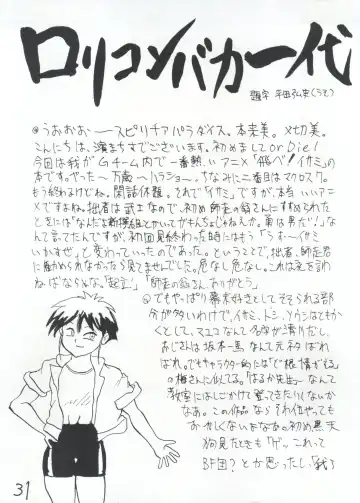 ロリコンバカ一代
題字 平田弘史(うそ)
@うおおお——スピリチアパラダイス。本実美。×切美。
こんにちは、濱まちすでございます。初めましてor Die!
今回は我がGチーム内で一番熱いアニメ「飛べ!イサミ」の
本です。やった〜万歳〜ハラショー〜。ちなみに二番目はマクロス7。
もう終わるけどね。閑話休題。それで「イサミ」ですが、本当いいアニ
メですよね。拙者は武士なので、初め師走の翁さんにすすめられた
ときには「なんだよ新撰組とかいってガキんちょじゃねえか。男は男だ!」な
んて言ってたんですが、初回見終わった時にはもう「うむーイサミ
いかせぇ」と変わっていったのであった。ということで、拙者、師走君
に勧められなかったら見てませんでした。危なし危なし。これは礼を言わ
ねばならぬな。「起立」「師走の翁さん、ありがとう」
@でもやっぱり幕末好きとしてそそられる部
分が大きいわけで、イサミ、トシ、ソウシはともか
くとして、マユコなんて名字が清川だし、
おじさんは坂本一馬なんて元ネタばれ
ばれ。でもキャラクター的には「ど根性ガエル」
の梅さんに似てる。「はるか先生〜」なんて
教室にはしごかけて登ってきたりしないか
なあ。この作品ならそれ位やっても
おかしくないよなぁ。初め黒天
狗見たときも「ゲッ、これって
BF団?とか思ったし、「我ら
31